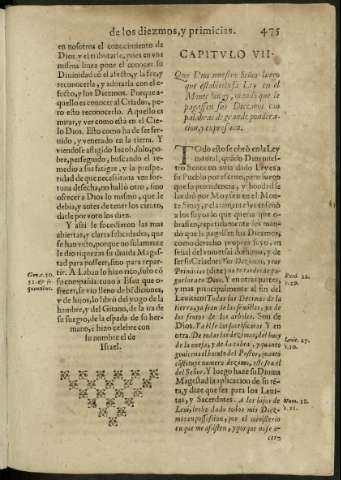 de los diezmos, y primicias. 475
en nosotros el conocimiento de
Dios, y el tributarle, pues en una
misma linea pone el conocer su
Divinidad co el afecto, y la fee, y
reconocerla, y admirarla con el e-
fecto, y los Diezmos. Porque a-
quello es conocer al Criador, pe-
ro esto reconocerlo. Aquello es
mirar, y ver como està en el Cie-
lo Dios. Esto como ha de ser ser-
uido, y venerado en la tierra. Y
viendose afligido Iacob, solo, po-
bre, perseguido, buscando el re-
medio a sus fatigas, y la prospe-
ridad de que necesitaua en for-
tuna desecha, no hallò otro, sino
ofrecer a Dios lo mismo, que le
debia, y antes de tener los ciento,
darle por voto los diez.
Y assi le sucedieron las mas
abiertas, y claras felicidades, que
se han visto, porque no solamente
le dio riquezas su diuina Mages-
tad para posseer, sino para repar-
tir. A Laban lo hizo rico, solo cõ
su compañia: tuuo a Esau que o-
frecer, se vio lleno de bẽdiciones,
y de hijos, lo librò del yugo de la
hambre, y del Gitano, de la ira de
su suegro, de la espada de su her-
mano, è hizo celebre con
su nombre el de
Israel.
Gen. c. 30.
31. & se-
quentibus.
CAPITVLO VII.
Que Dios nuestro Señor luego
que estableciò su Ley en el
Monte Sinay, mandò que le
pagassen sus Diezmos con
palabras de grande pondera-
cion, y expressiua.
TOdo esto se obrò en la Ley
natural, quãdo Dios nues-
tro Señor no auia dado Ley a
su Pueblo por escrito, pero luego
que su prouidencia, y bondad se
la diò por Moysen en el Mon-
te Sinay, y claramente les enseñò
a los suyos lo que queria que o-
brassen, repetidamente les man-
dò que le pagassen sus Diezmos,
como derecho proprio suyo, en
señal del dominio eterno, y de
ser sus Criaturas
Primicias (dize) no tardes de pa-
garlas a Dios. Y en otras partes,
y mas principalmente al fin del
Leuitico: Todas las Dezimas de la
tierra, ya sean de las semillas, ya de
los frutos de los arboles, Son de
Dios. Y a èl se santificaràn. Y en
otra. De todas las dezimas, del buey
de la oveja, y de la cabra, y quanto
Señor. Y luego haze su Diuina
Magestad la aplicacion de su rẽ-
ta, y dize que sea para los Leui-
tas, y Sacerdotes. A los hijos de
Leui, les he dado todos mis Diez-
mos en possession, por el ministerio
en que me assisten, y porque no se e-
Exod. 22.
v. 29.
Leuit. 27.
v. 30.
Num. 18.
v. 21.